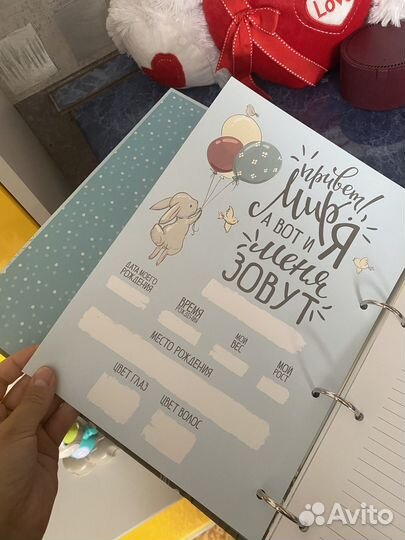 LOVE
привет!
Мир
А ВОТ И Я
меня
ЗОВУТ
ДАТА МОЕГО
РОЖДЕНИЯ
ВРЕМЯ
РОЖДЕНИЯ
МОЙ
ВЕС
МОЙ
РОСТ
МЕСТО РОЖДЕНИЯ
ЦВЕТ ГЛАЗ
ЦВЕТ ВОЛОС
Avito